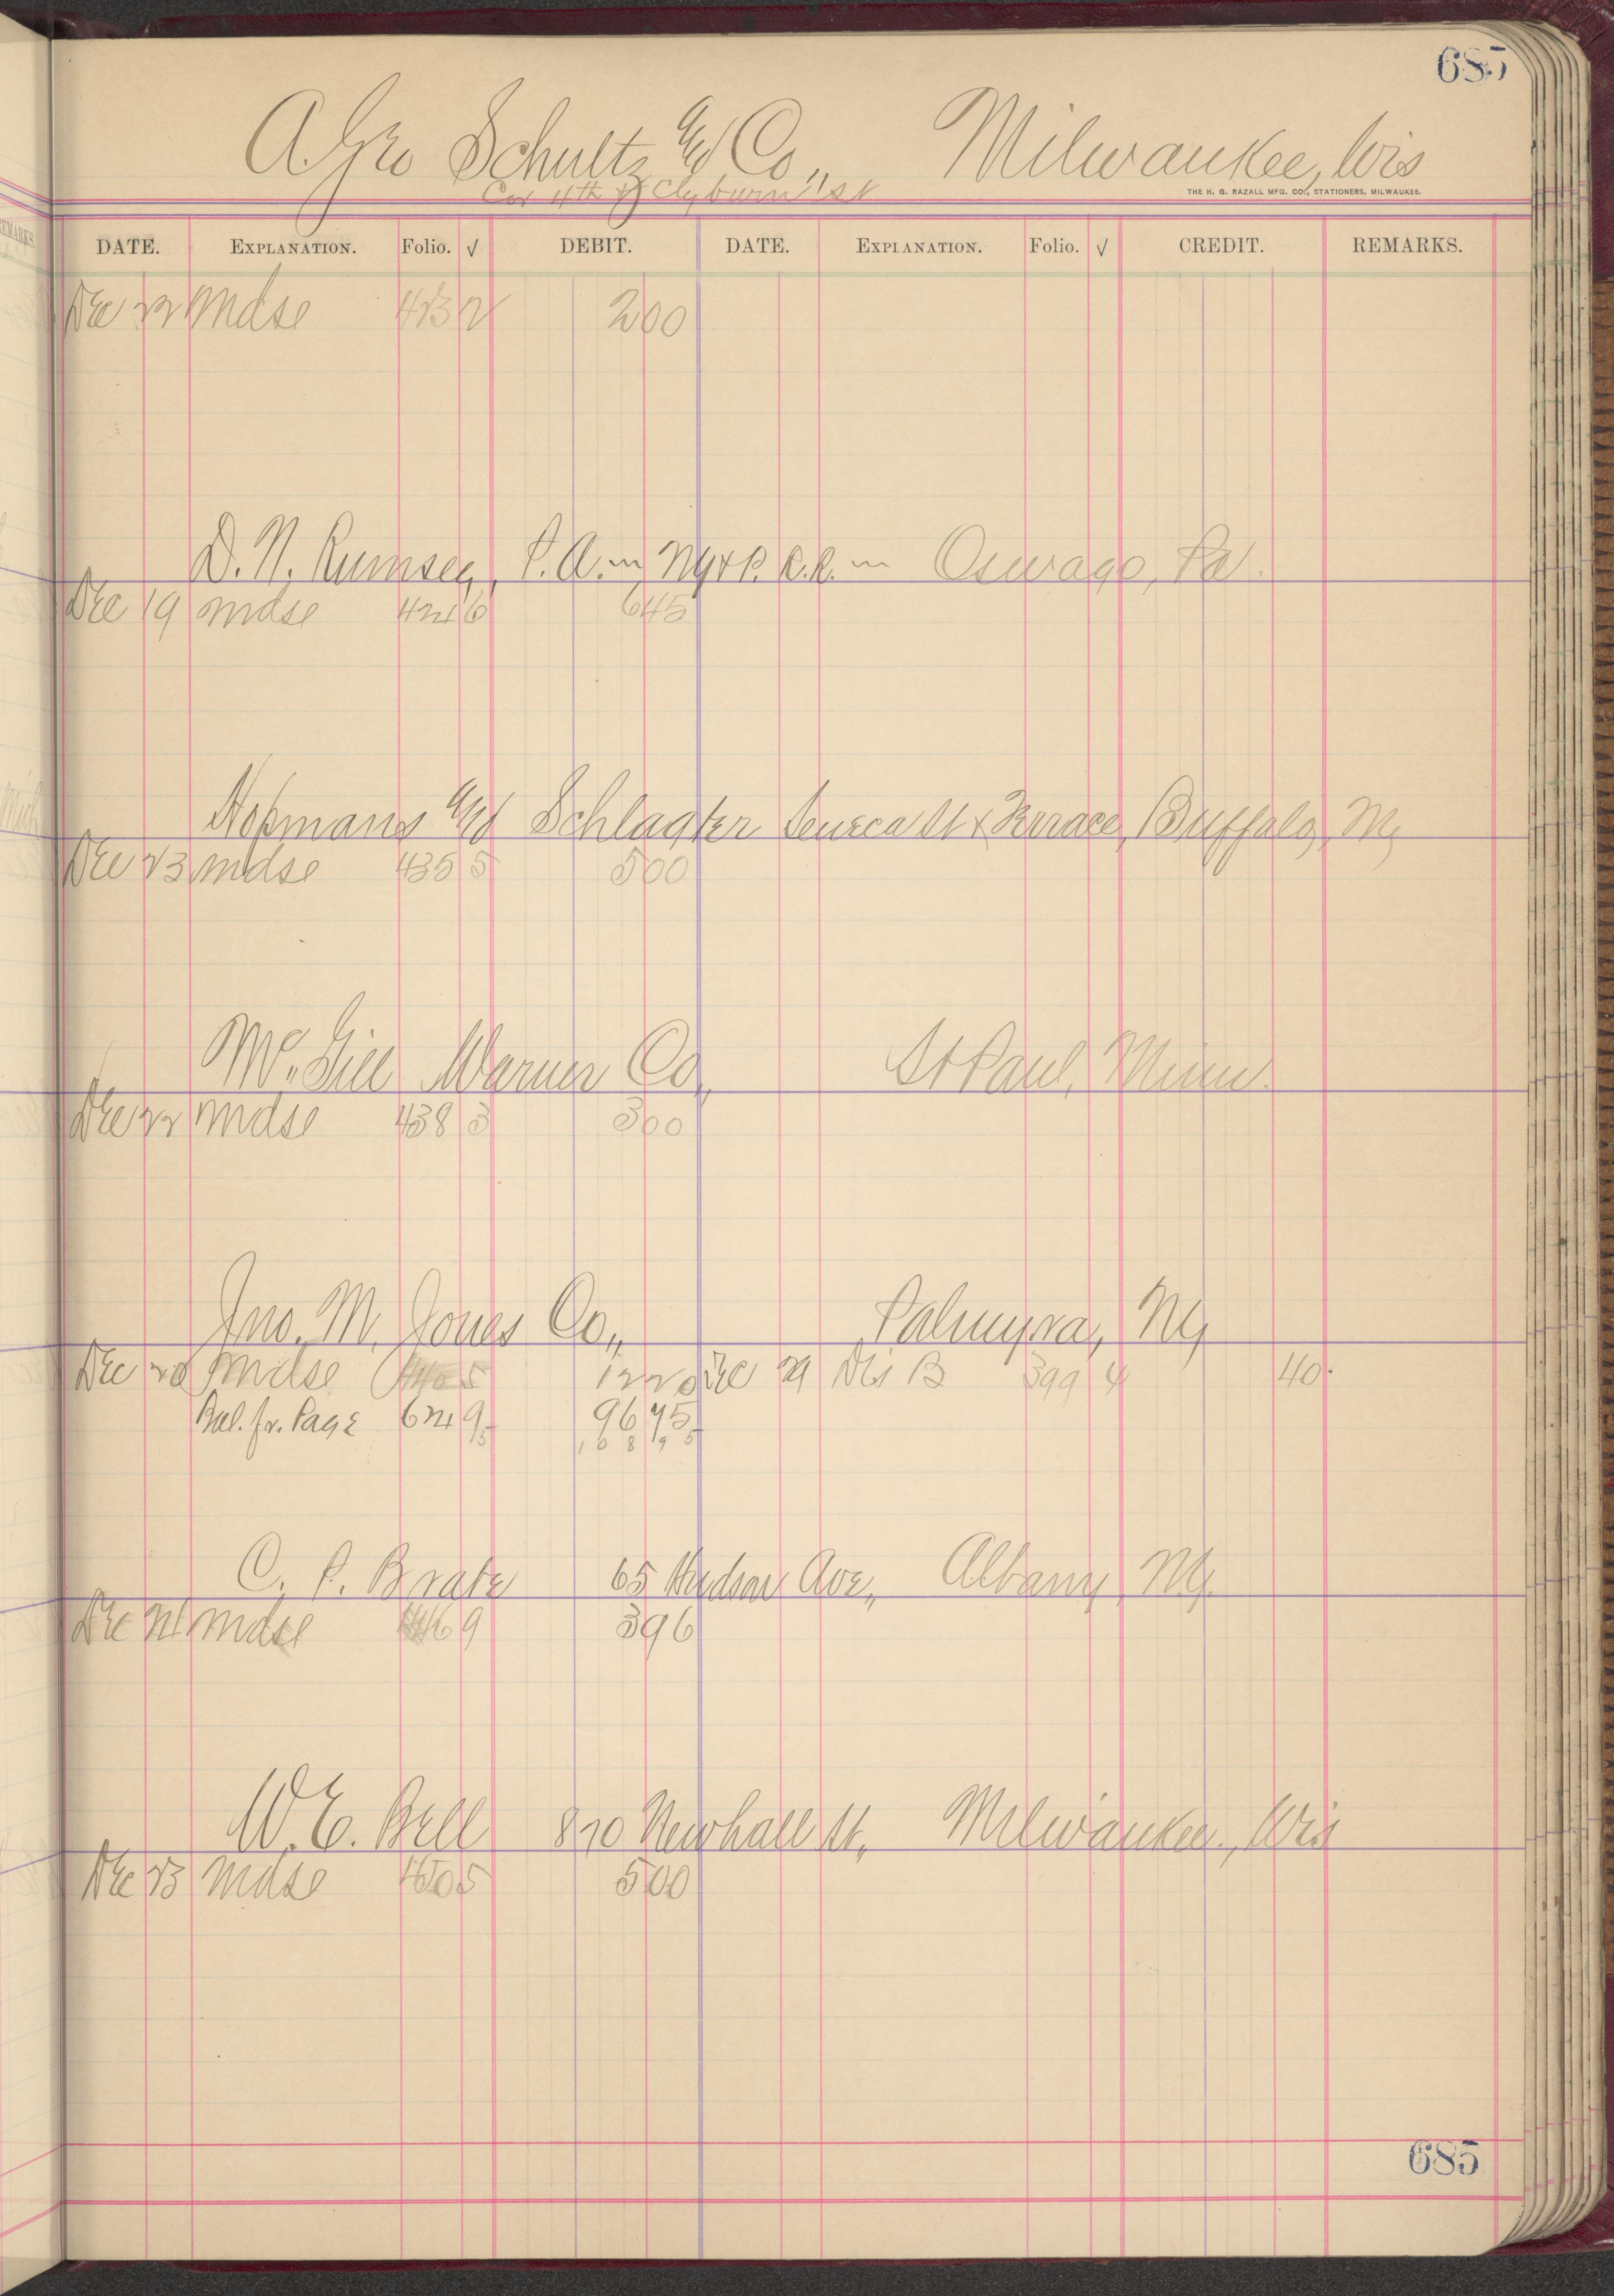 685
A. Geo Schultz and Co., Milwaukee, Wis
Cor 4th & Clyburn St
THE H. G. RAZALL MFG. CO., STATIONERS, MILWAUKEE.
REMARKS.
DATE. EXPLANATION. Folio. √ DEBIT. DATE. EXPLANATION. Folio. √ CREDIT. REMARKS.
Dec 22 Mdse 432 200
D. N. Rumsey, P. A. " NY & P. R.R. " Oswago, Pa.
Dec 19 Mdse 4246 645
Hofmans and Schlagter Seneca St & Terrace, Buffalo, NY
Mich
Dec 23 Mdse 4355 500
Mc. Gill Warner Co, St Paul, Minn.
Dec 22 Mdse 4383 300
Jno. M. Jones Co,, Palmyra, NY
Dec 20 Mdse 5 1220 Dec 29 Dis B 3994 40
Bal. fr. Page 6249 9675
10895
C. P. Brate 65 Hudson Ave,, Albany, NY.
Dec 21 Mdse 469 396
W. E. Bell 870 Newhall St, Milwaukee, Wis
Dec 23 Mdse 505 500
685